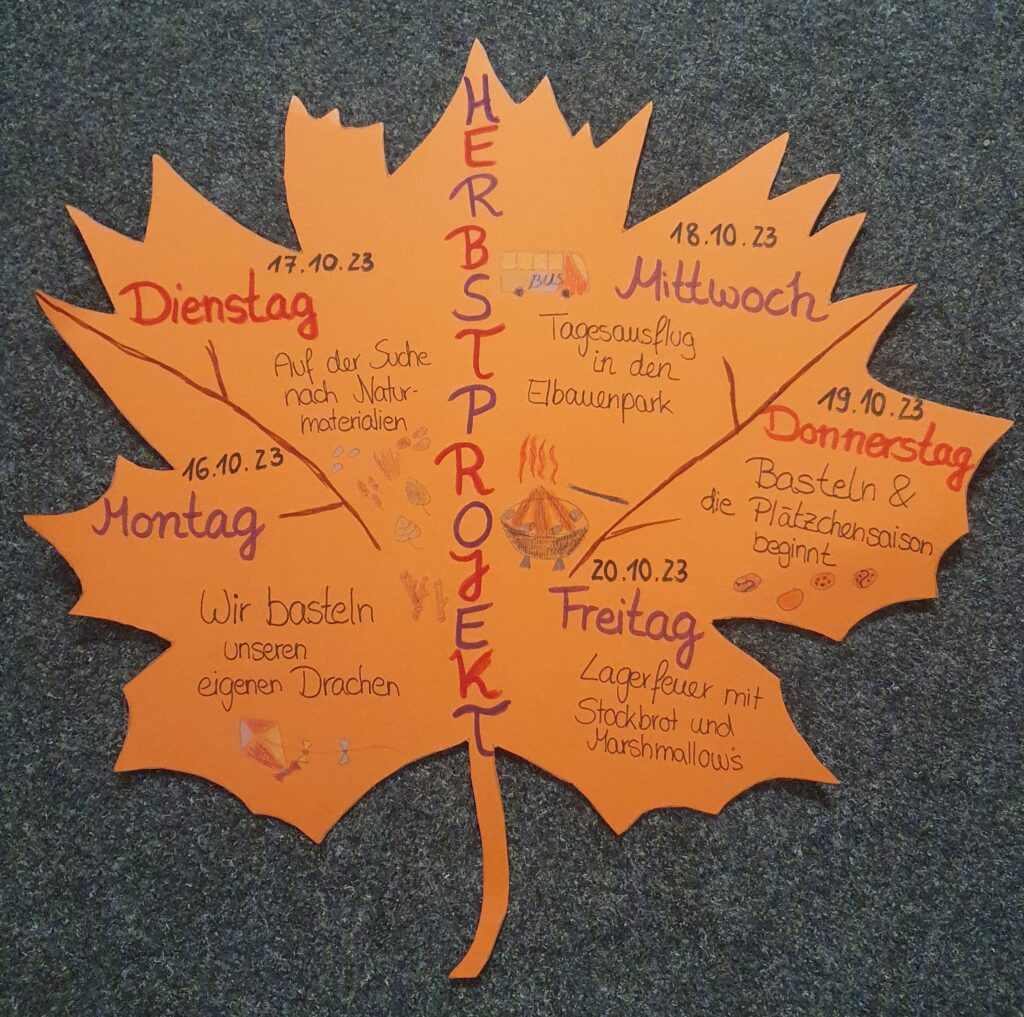 HERBSTPROJEKT
16.10.23
Montag
Wir basteln
unseren
eigenen Drachen
17.10.23
Dienstag
Auf der Suche
nach Natur-
materialien
18.10.23
Mittwoch
BUS
Tagesausflug
in den
Elbauenpark
19.10.23
Donnerstag
Basteln &
die Plätzchensaison
beginnt
20.10.23
Freitag
Lagerfeuer mit
Stockbrot und
Marshmallow's